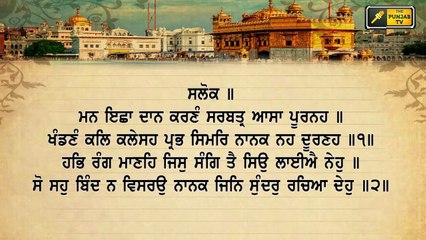 THE
PUNJAB
TV
ਸਲੋਕ ॥
ਮਨ ਇਛਾ ਦਾਨ ਕਰਣੰ ਸਰਬਤ੍ਰ ਆਸਾ ਪੂਰਨਹ ॥
ਖੰਡਣੰ ਕਲਿ ਕਲੇਸਹ ਪ੍ਰਭ ਸਿਮਰਿ ਨਾਨਕ ਨਹ ਦੂਰਣਹ ॥੧॥
ਹਭਿ ਰੰਗ ਮਾਣਹਿ ਜਿਸੁ ਸੰਗਿ ਤੈ ਸਿਉ ਲਾਈਐ ਨੇਹੁ ॥
ਸੋ ਸਹੁ ਬਿੰਦ ਨ ਵਿਸਰਉ ਨਾਨਕ ਜਿਨਿ ਸੁੰਦਰੁ ਰਚਿਆ ਦੇਹੁ ॥੨॥